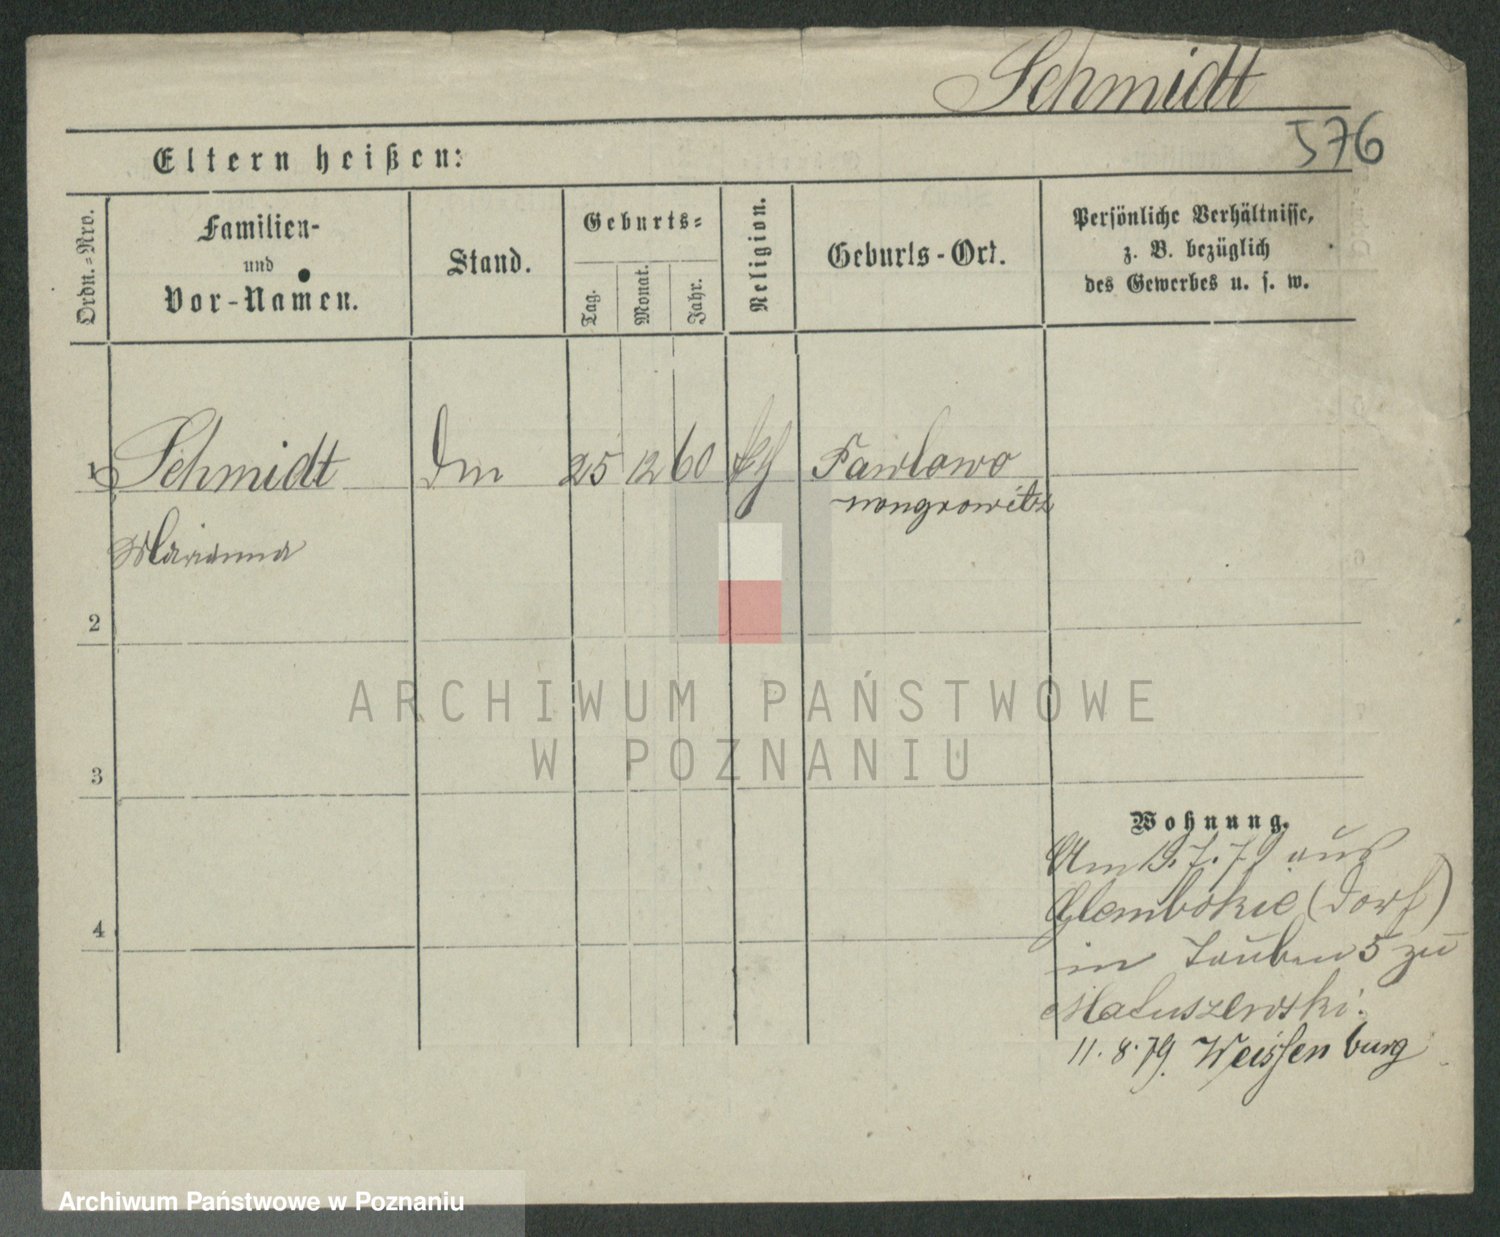 Schmidt
576
Eltern heißen:
Ordn.=Nro.
Familien-
und
Vor-Namen.
Stand.
Geburts=
Tag.
Monat.
Jahr.
Religion.
Geburts-Ort.
Persönliche Verhältnisse,
z. B. bezüglich
des Gewerbes u. s. w.
1 Schmidt 25 12 60 Pawlowo
wongrowitz
Marianna
2
3
4
Wohnung.
Am 19.7.79 aus
Glembokie (Dorf)
in Tauben 5 zu
Matuszewski.
11.8.79. Weissenburg
ARCHIWUM PAŃSTWOWE
W POZNANIU
Archiwum Państwowe w Poznaniu